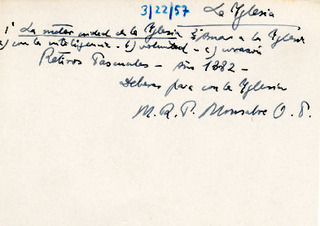 3/22/57 La Yglesia
1° La maternidad de la Yglesia 2° Amar a la Yglesia
a) con la inteligencia - b) voluntad - c) corazón
Retiros Pascuales - Año 1882 -
Deberes para con la Yglesia
M. R. P. Monsabre O. P.